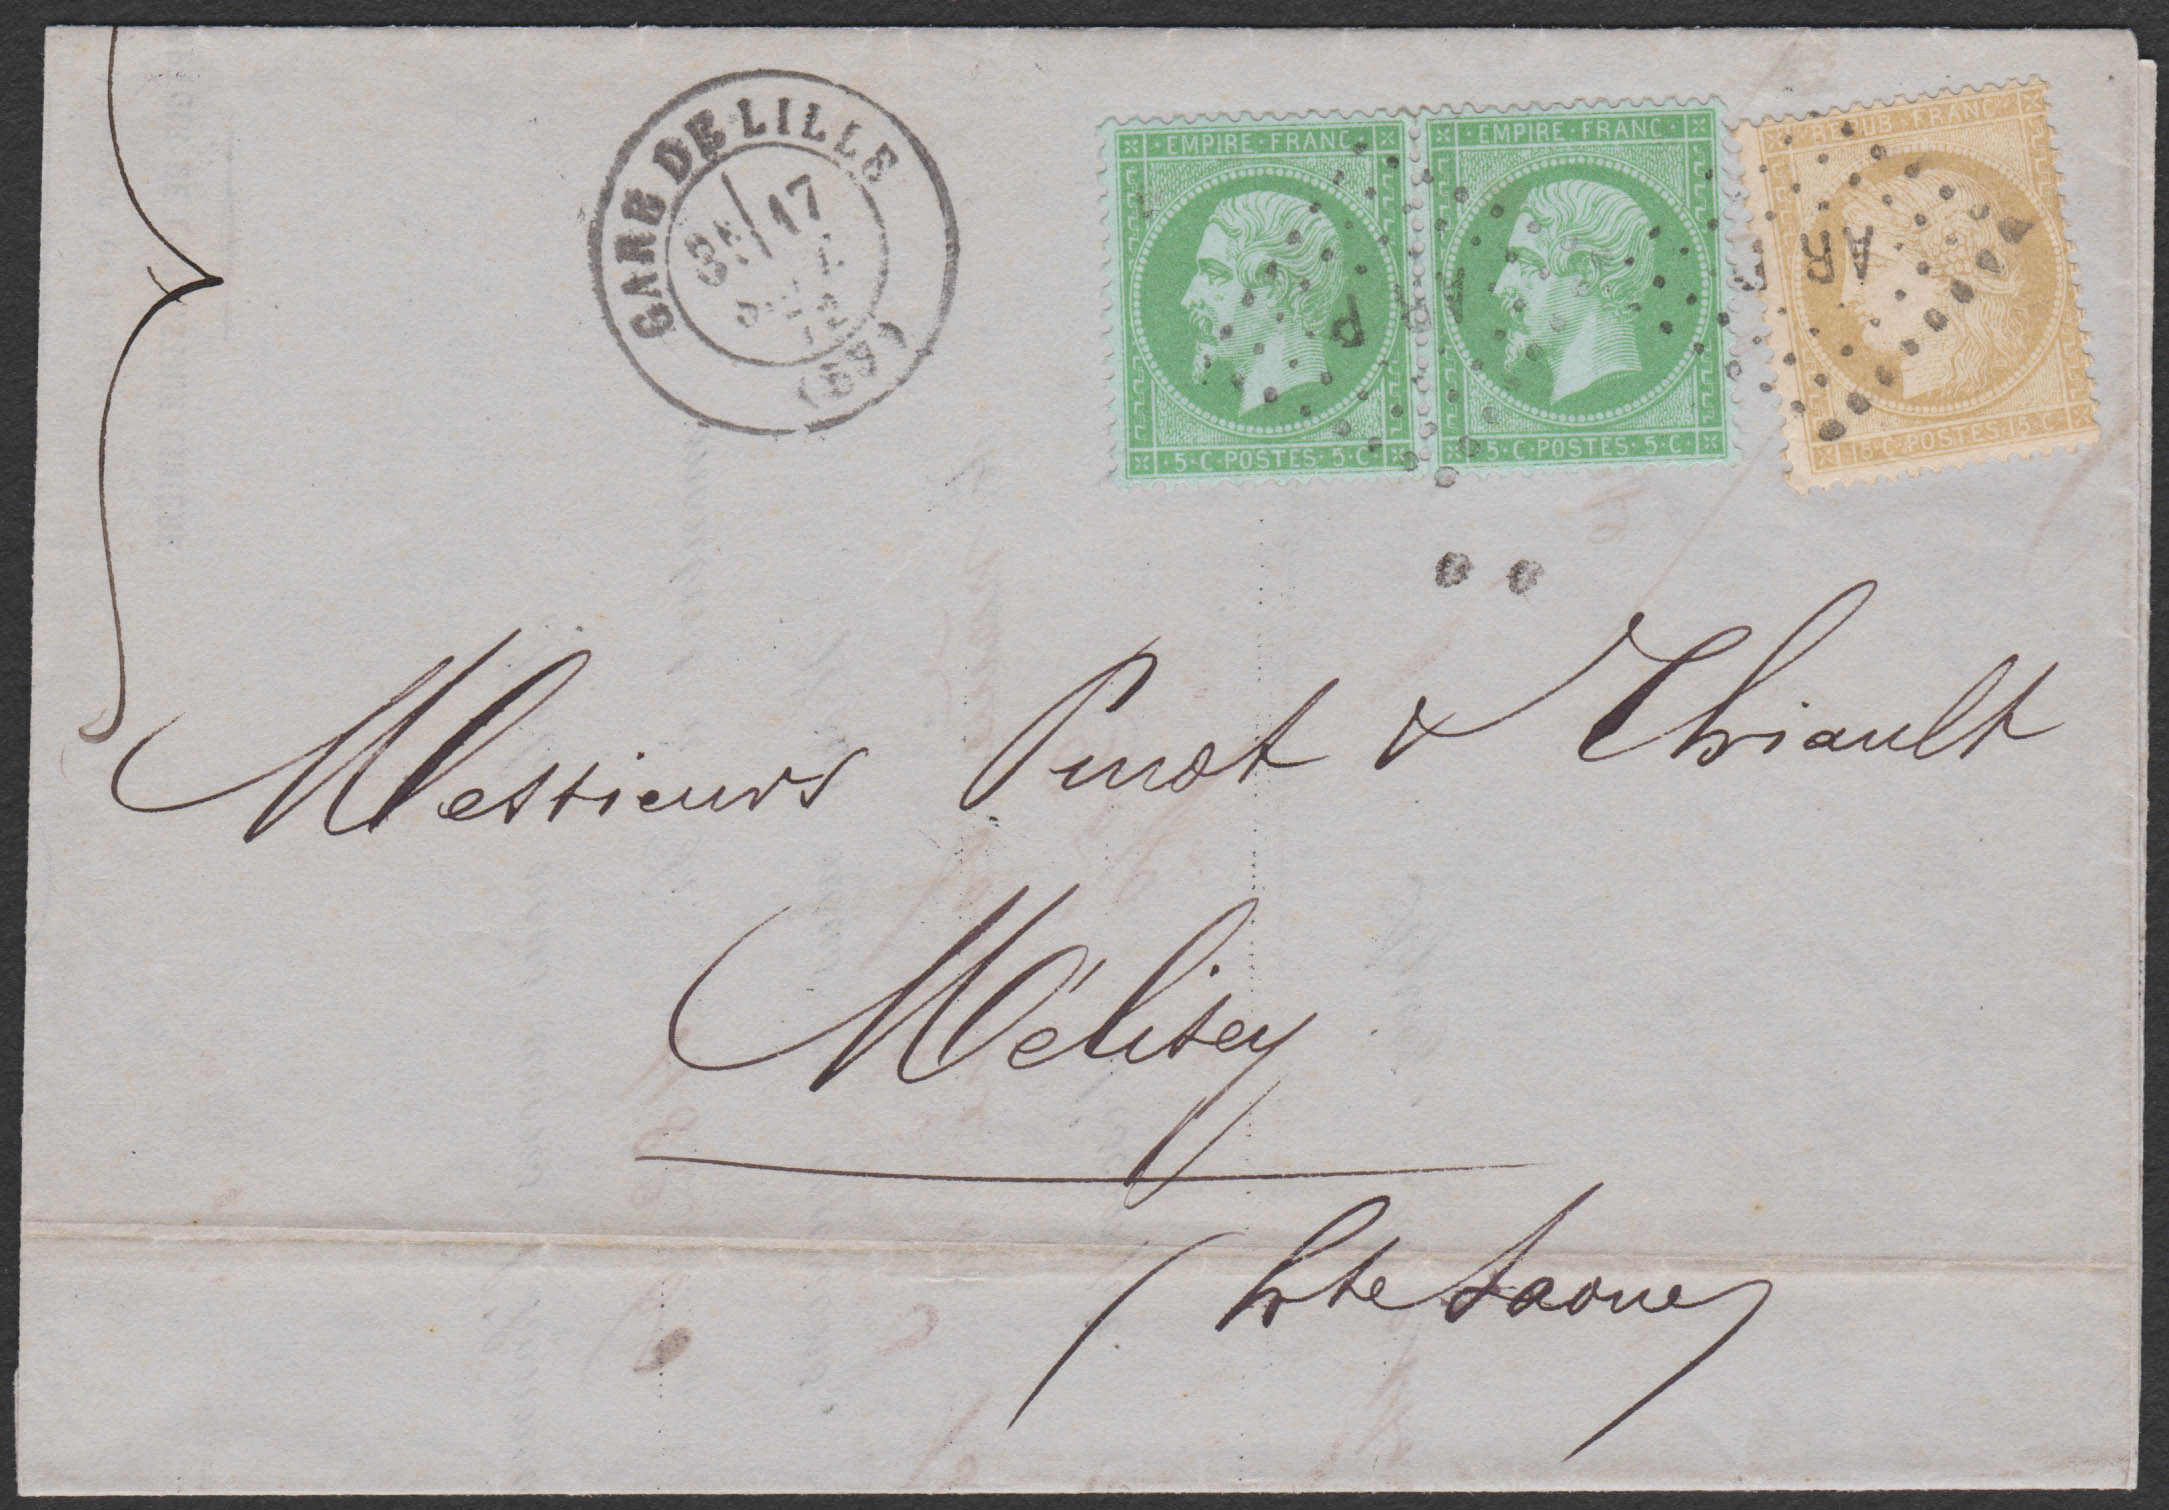 GARE DE LILLE
3E/ 17
72
EMPIRE · FRANC
5 · C · POSTES · 5 · C
EMPIRE · FRANC
5 · C · POSTES · 5 · C
REPUB · FRANC
15 · C · POSTES · 15 · C
Messieurs Pinot & Thriault
Mélisey
hte Saone